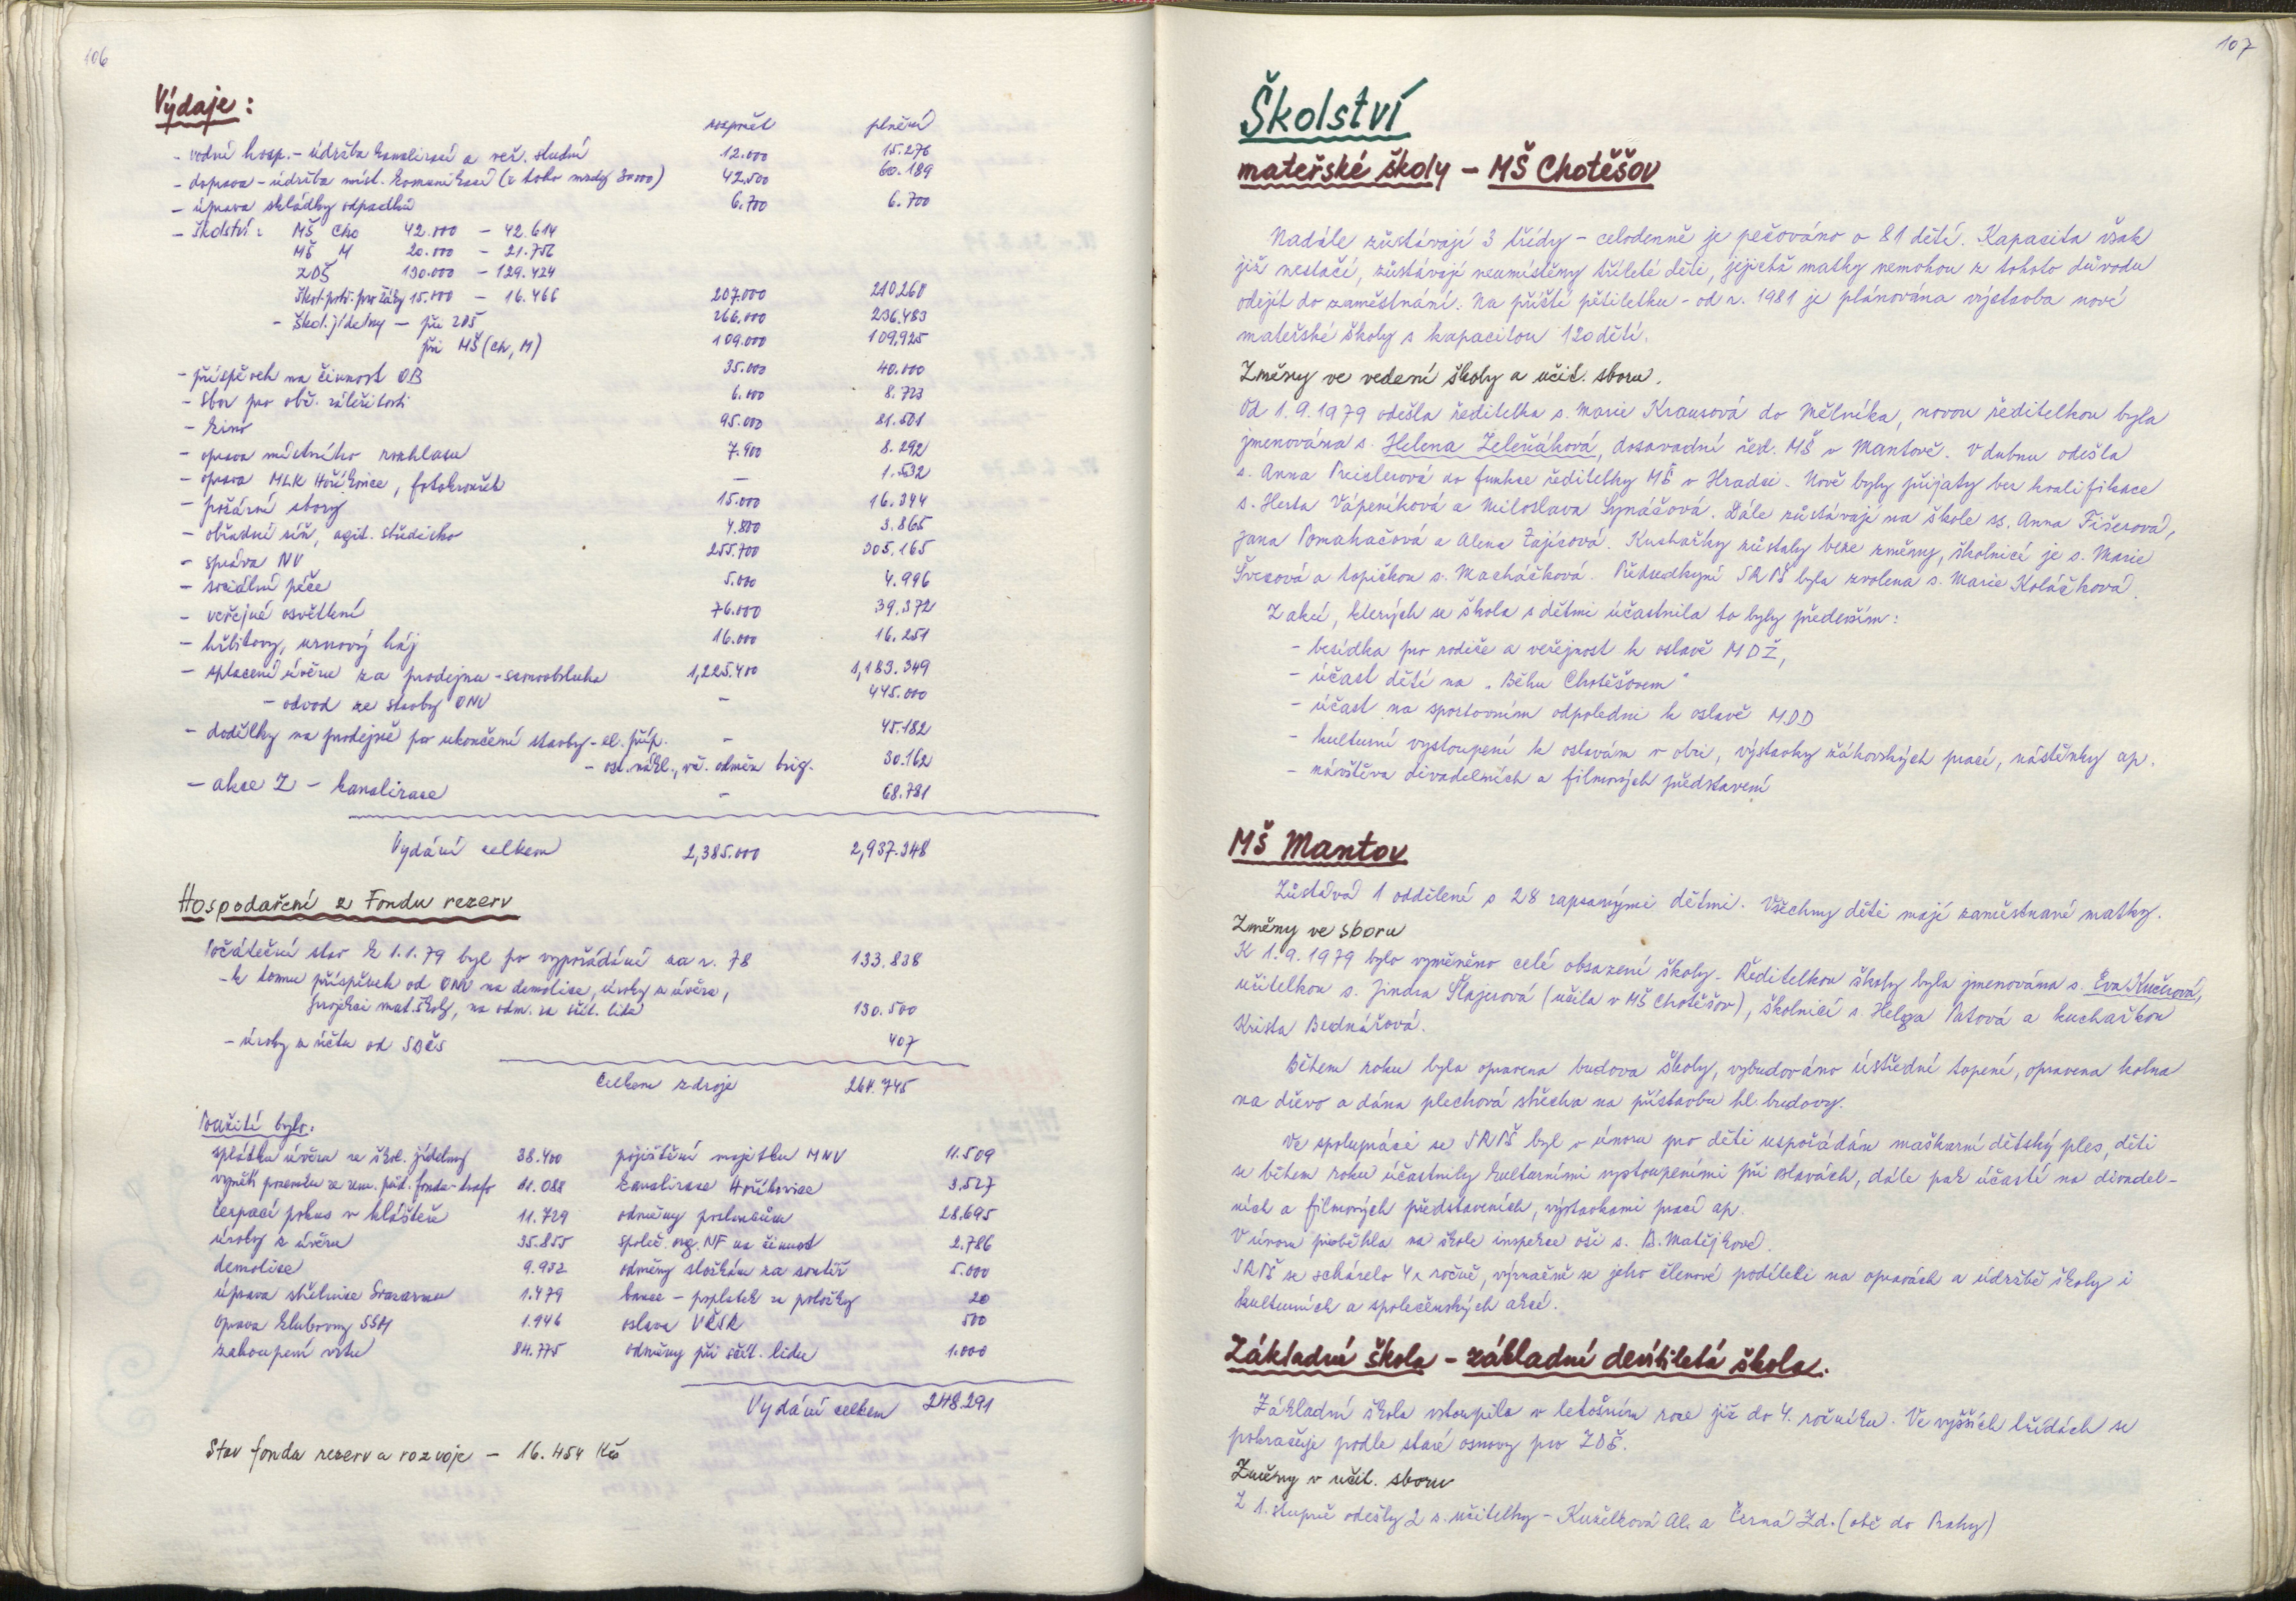 106
Výdaje:
rozpočet plnění
- vodní hosp. - údržba kanalizací a veř. studní 12.000 15.276
- doprava - údržba míst. komunikací (z toho mzdy 30000) 42.500 60.189
- úprava skládky odpadků 6.700 6.700
- školství: MŠ Cho 42.000 - 42.614
MŠ M 20.000 - 21.756
ZDŠ 130.000 - 129.424
Škol. potř. pro žáky 15.000 - 16.466 207.000 210.260
- škol. jídelny - při ZDŠ 266.000 236.483
při MŠ (Ch, M) 109.000 109.925
- příspěvek na činnost OB 35.000 40.000
- Sbor pro obč. záležitosti 6.000 8.723
- kino 95.000 81.501
- oprava místního rozhlasu 7.900 8.292
- oprava MLK Hoříkovice, fotokroužek - 1.532
- požární sbory 15.000 16.344
- obřadní síň, agit. středisko 4.800 3.865
- správa NV 255.700 305.165
- sociální péče 5.000 4.996
- veřejné osvětlení 76.000 39.372
- hřbitovy, urnový háj 16.000 16.251
- splacení úvěru za prodejnu - samoobsluha 1,225.400 1,183.349
- odvod ze stavby ONV - 445.000
- dodělky na prodejně po ukončení stavby - el. příp. - 45.182
- ost. nákl., vč. odměn brig. 30.162
- akce Z - kanalizace - 68.781
Vydání celkem 2,385.000 2,937.348
Hospodaření z Fondu rezerv
Počáteční stav k 1.1.79 byl po vypořádání za r. 78 133.838
- k tomu příspěvek od ONV na demolice, úroky z úvěru,
projekci mat. školy, na odm. za sčít. lidu 130.500
- úroky z účtu od SBČS 407
Celkem zdroje 264.745
Použití bylo:
splátka úvěru ze škol. jídelny 38.400 pojištění majetku MNV 11.509
vynětí pozemku ze zem. půd. fondu - trafo 11.088 kanalizace Hoříkovice 3.527
čerpací pokus v klášteře 11.729 odměny poslancům 28.695
úroky z úvěru 35.855 společ. org. NF na činnost 2.786
demolice 9.932 odměny složkám za soutěž 5.000
úprava střelnice Svazarmu 1.479 bance - poplatek za položky 20
oprava klubovny SSM 1.946 oslava VŘSR 500
zakoupení vrtu 84.775 odměny při sčít. lidu 1.000
Vydání celkem 248.291
Stav fondu rezerv a rozvoje - 16.454 Kčs
107
Školství
mateřské školy - MŠ Chotěšov
Nadále zůstávají 3 třídy - celodenně je pečováno o 81 dětí. Kapacita však
již nestačí, zůstávají neumístěny tříleté děti, jejichž matky nemohou z tohoto důvodu
odejít do zaměstnání. Na příští pětiletku - od r. 1981 je plánována výstavba nové
mateřské školy s kapacitou 120 dětí.
Změny ve vedení školy a učit. sboru.
Od 1.9.1979 odešla ředitelka s. Marie Krausová do Mělníka, novou ředitelkou byla
jmenována s. Helena Zeleňáková, dosavadní řed. MŠ v Mantově. V dubnu odešla
s. Anna Preislerová do funkce ředitelky MŠ v Hradci. Nově byly přijaty bez kvalifikace
s. Herta Vápeníková a Miloslava Synáčová. Dále zůstávají na škole ss. Anna Fišerová,
Jana Pomahačová a Alena Zajícová. Kuchařky zůstaly beze změny, školnicí je s. Marie
Švecová a topičkou s. Macháčková. Předsedkyní SRPŠ byla zvolena s. Marie Koláčková.
Z akcí, kterých se škola s dětmi účastnila to byly především:
- besídka pro rodiče a veřejnost k oslavě MDŽ,
- účast dětí na „Běhu Chotěšovem"
- účast na sportovním odpoledni k oslavě MDD
- kulturní vystoupení k oslavám v obci, výstavky žákovských prací, nástěnky ap.
- návštěva divadelních a filmových představení
MŠ Mantov
Zůstává 1 oddělení s 28 zapsanými dětmi. Všechny děti mají zaměstnané matky.
Změny ve sboru
K 1.9.1979 bylo vyměněno celé obsazení školy. Ředitelkou školy byla jmenována s. Eva Kučerová,
učitelkou s. Jindra Šlajsová (učila v MŠ Chotěšov), školnicí s. Helga Patová a kuchařkou
Krista Bednářová.
Během roku byla opravena budova školy, vybudováno ústřední topení, opravena kolna
na dřevo a dána plechová střecha na přístavbu hl. budovy.
Ve spolupráci se SRPŠ byl v únoru pro děti uspořádán maškarní dětský ples, děti
se během roku účastnily kulturními vystoupeními při oslavách, dále pak účastí na divadel-
ních a filmových představeních, výstavkami prací ap.
V únoru proběhla na škole inspekce oši s. B. Matějkové.
SRPŠ se scházelo 4x ročně, význačně se jeho členové podíleli na opravách a údržbě školy i
kulturních a společenských akcí.
Základní škola - základní devítiletá škola.
Základní škola vstoupila v letošním roce již do 4. ročníku. Ve vyšších třídách se
pokračuje podle staré osnovy pro ZDŠ.
Změny v učit. sboru
Z 1. stupně odešly 2 s. učitelky - Kuželková Al. a Černá Zd. (obě do Prahy)